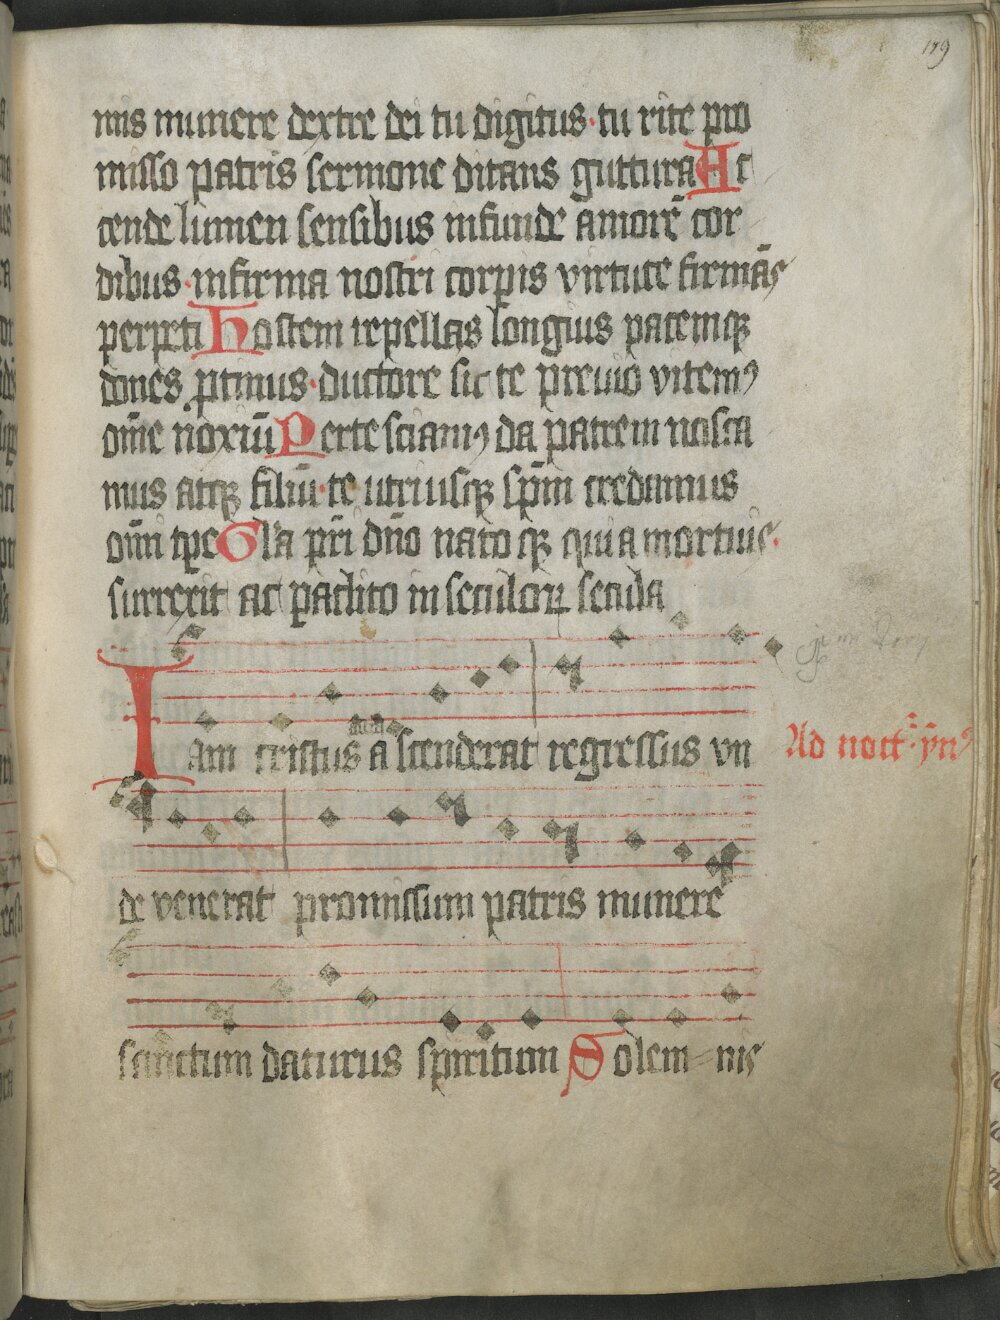 179
mis munere dextre dei tu digitus · tu rite pro
misso patris sermone ditans guttura Ac
cende lumen sensibus infunde amorē cor
dibus · infirma nostri corꝑis virtute firmās
perpeti Hostem repellas longius pacemqꝫ
dones ꝓtinus · ductore sic te previo vitemꝰ
om̄e noxiū Per te sciamꝰ da patrem nosca
mus atqꝫ filiū · te utriusqꝫ sp̄m credamus
om̄i tp̄e Gl̄a pr̄i dn̄o natoqꝫ qui a mortuis ·
surrexit ac paclito in seculoꝝ secula
Iam cristus ascenderat regressus vn
Ad noct͛ · ym̄ꝰ
de venerat promissum patris munere
sanctum daturus spiritum Solem nis